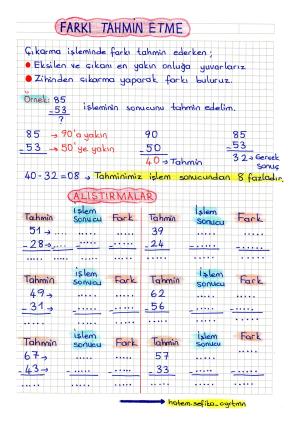 FARKI TAHMİN ETME
Çıkarma işleminde farkı tahmin ederken;
● Eksilen ve çıkanı en yakın onluğa yuvarlarız
● Zihinden çıkarma yaparak farkı buluruz.
Örnek: 85
- 53 işleminin sonucunu tahmin edelim.
?
85 → 90'a yakın 90 85
- 53 → 50'ye yakın - 50 - 53
40 → Tahmin 32 → Gerçek sonuç
40-32=08 → Tahminimiz işlem sonucundan 8 fazladır.
ALIŞTIRMALAR
Tahmin İşlem sonucu Fark Tahmin İşlem sonucu Fark
51 →.... ..... ..... 39 ..... .....
- 28 →.... ..... ..... - 24 ..... .....
..... ..... ..... .....
Tahmin İşlem sonucu Fark Tahmin İşlem sonucu Fark
49 → ..... ..... 62 ..... .....
- 31 → ..... ..... - 56 ..... .....
..... ..... ..... .....
Tahmin İşlem sonucu Fark Tahmin İşlem sonucu Fark
67 → ..... ..... 57 ..... .....
- 43 → ..... ..... - 33 ..... .....
..... ..... ..... .....
hatem.sefika_ogrtmn